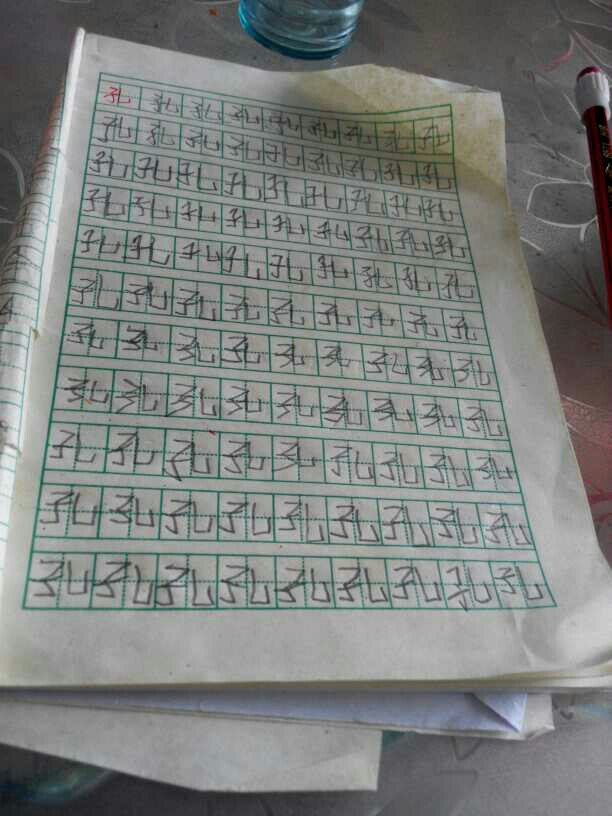 孔孔孔孔孔孔孔孔孔
孔孔孔孔孔孔孔孔孔
孔孔孔孔孔孔孔孔孔
孔孔孔孔孔孔孔孔孔
孔孔孔孔孔孔孔孔孔
孔孔孔孔孔孔孔孔孔
孔孔孔孔孔孔孔孔孔
孔孔孔孔孔孔孔孔孔
孔孔孔孔孔孔孔孔孔
孔孔孔孔孔孔孔孔孔
孔孔孔孔孔孔孔孔孔